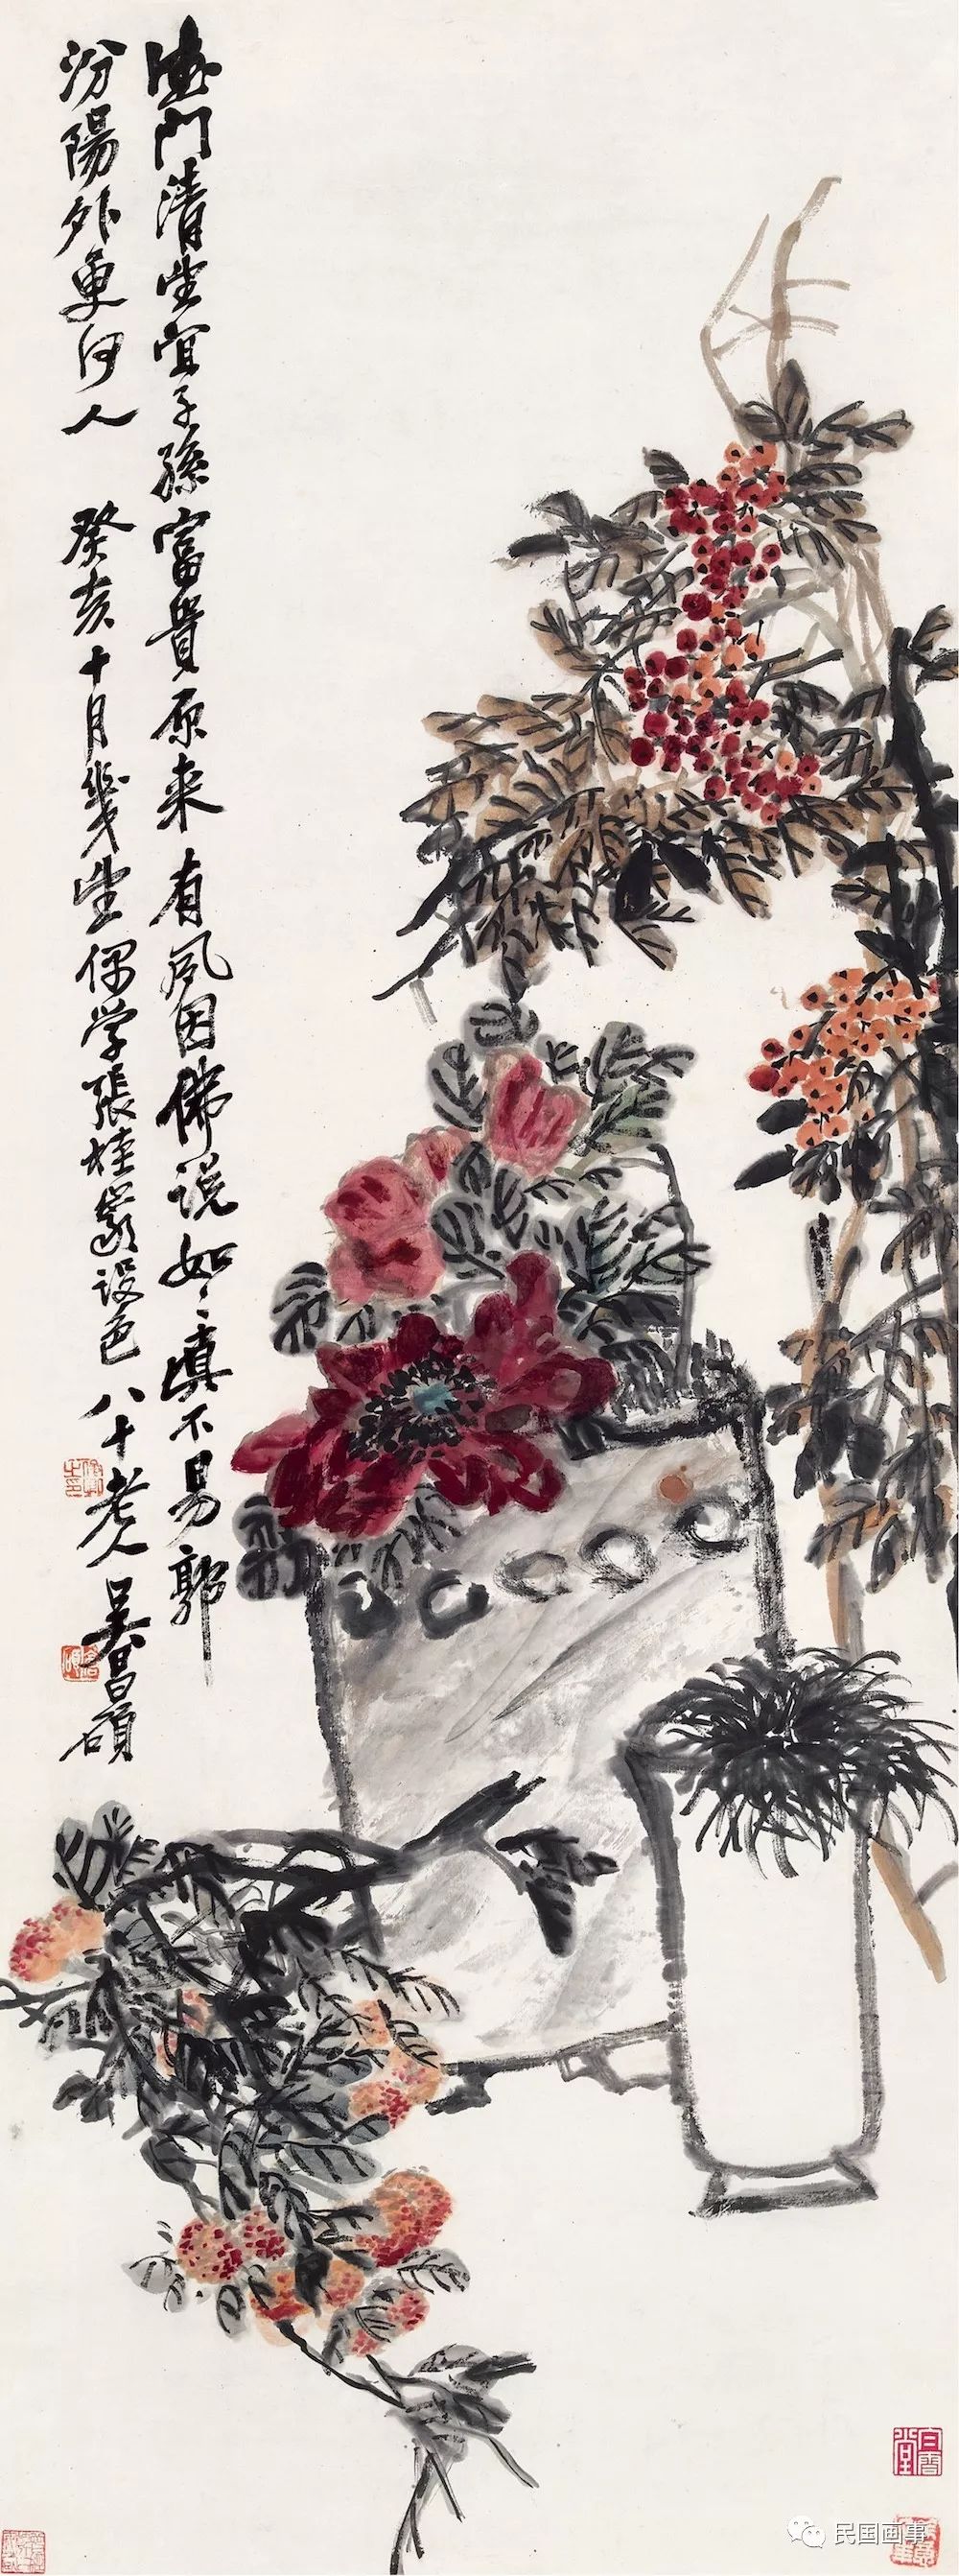 德門清望宜子孫富貴原来有夙因佛説如〻真不易郭
汾陽外更何人 癸亥十月幾望偶学張桂巖設色 八十老人 吴昌碩
民国画事